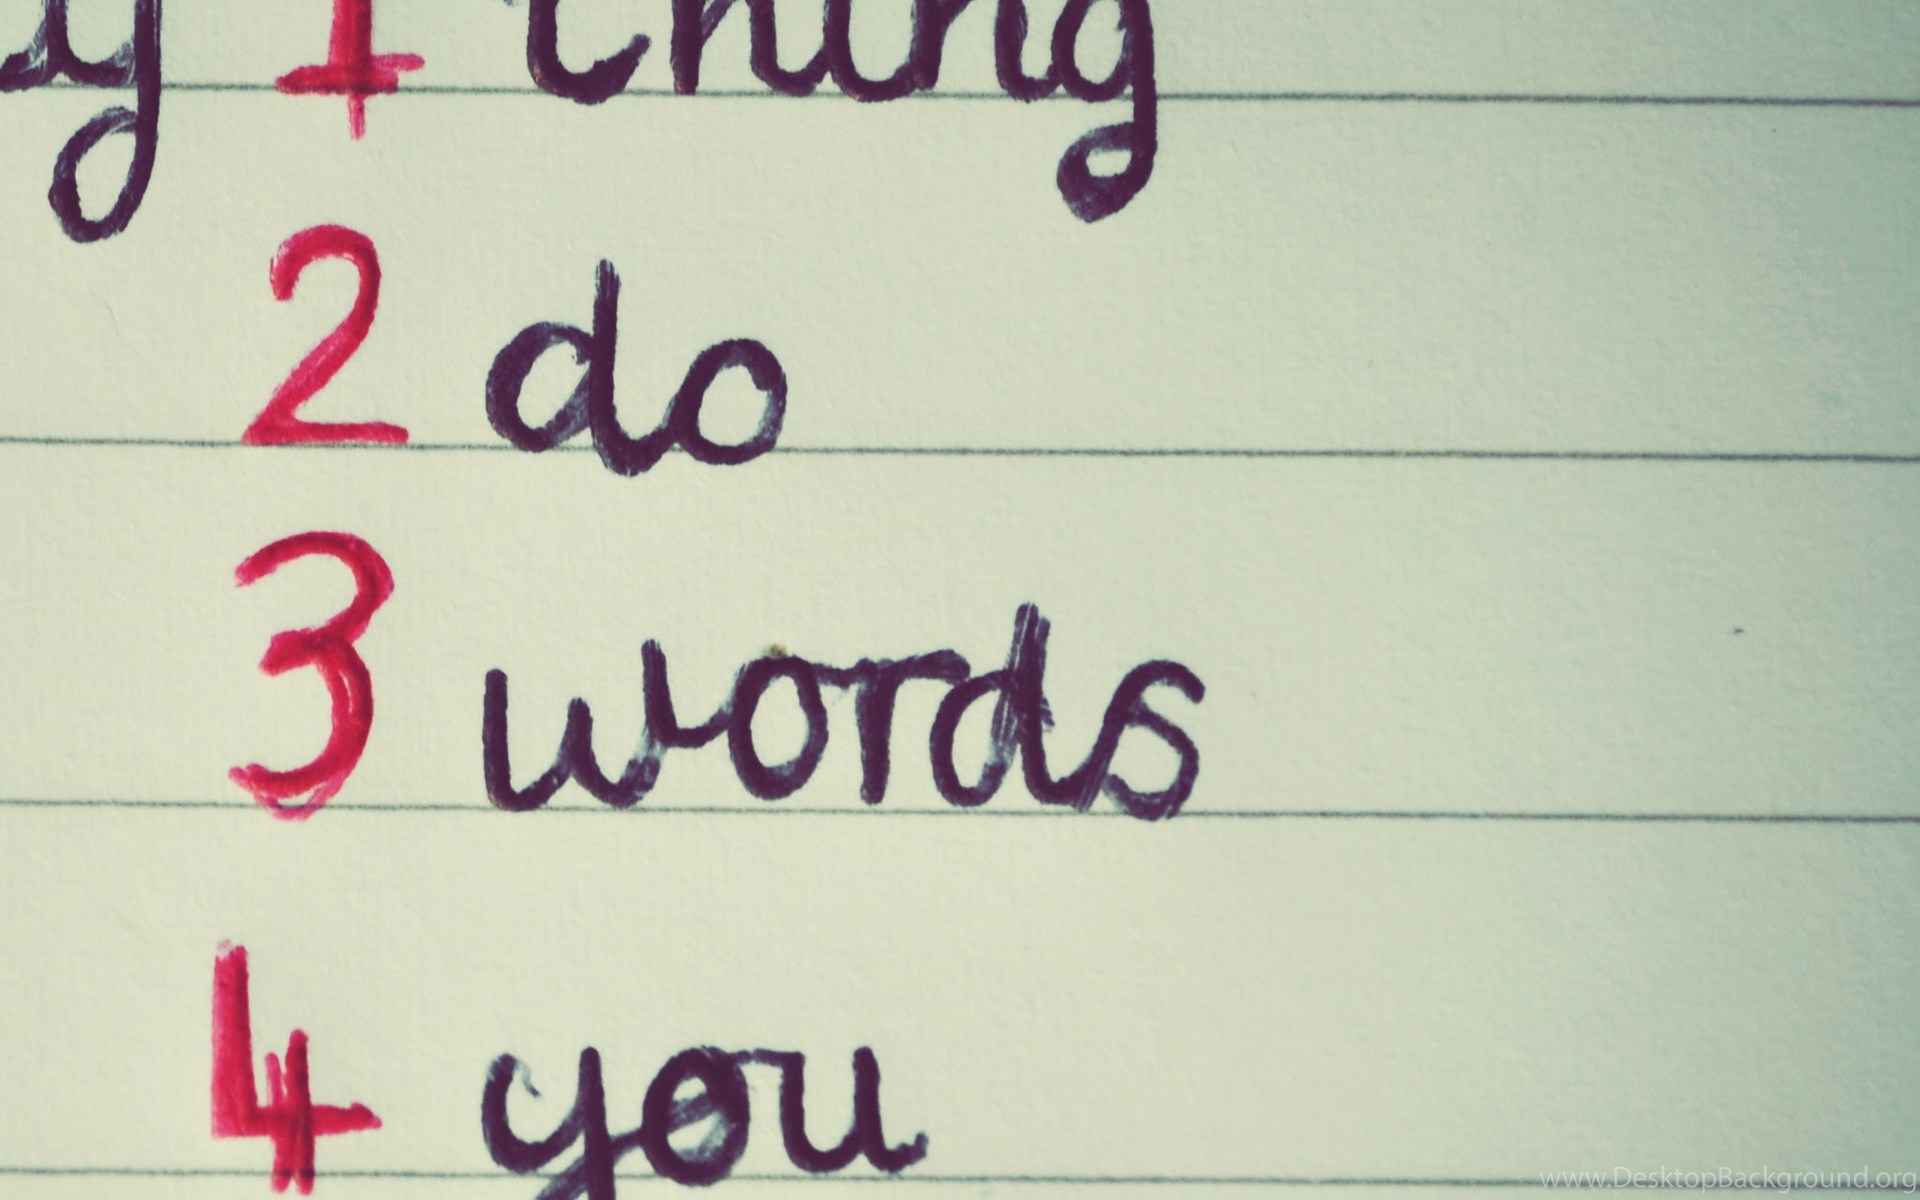 1 thing
2 do
3 words
4 you
www.DesktopBackground.org